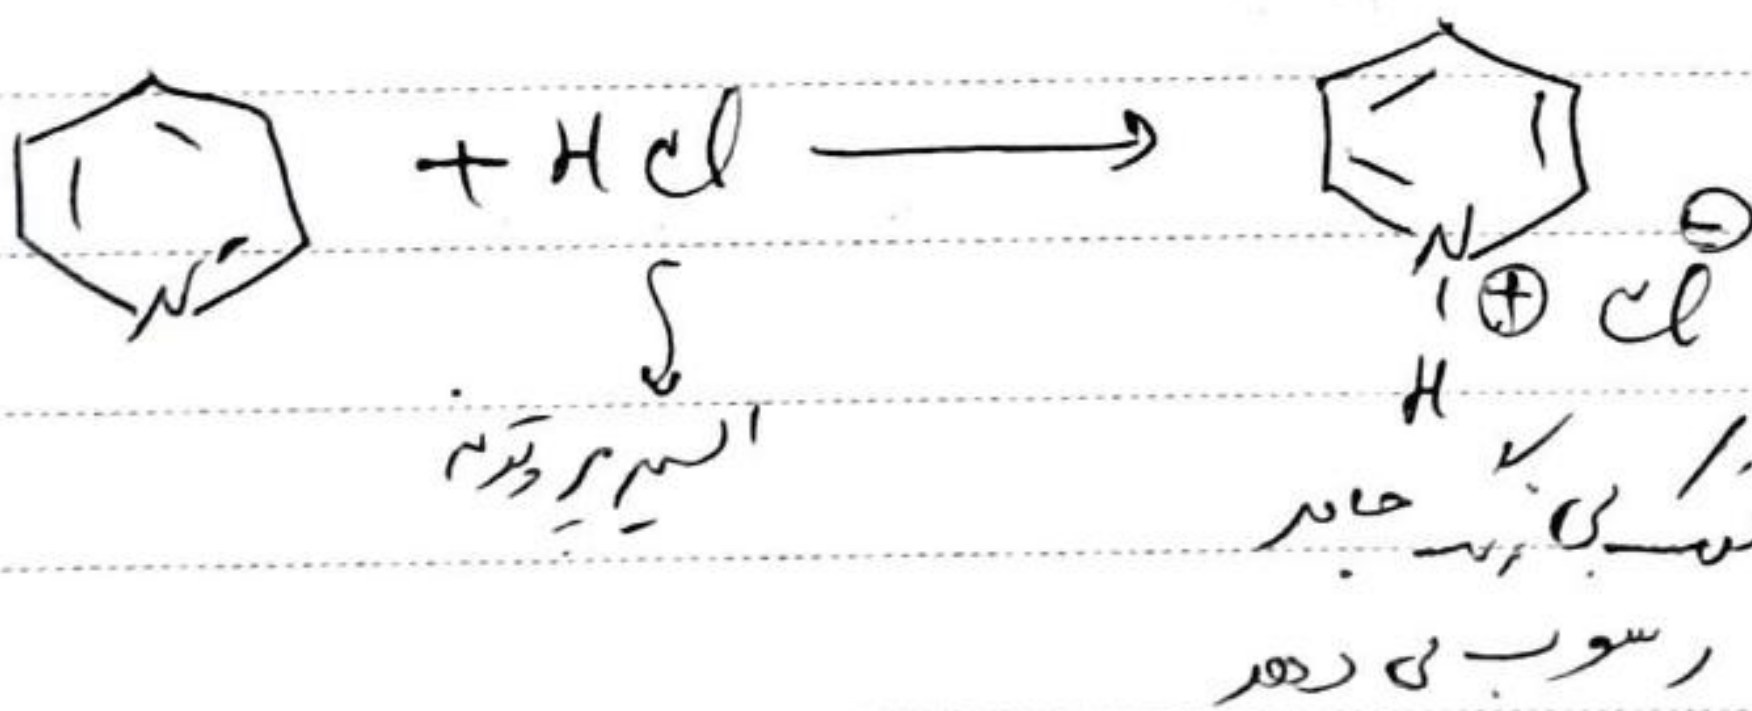 N + H Cl → N ⊕ Cl ⊖
H
اسید پروتونه
جامد
رسوب می دهد